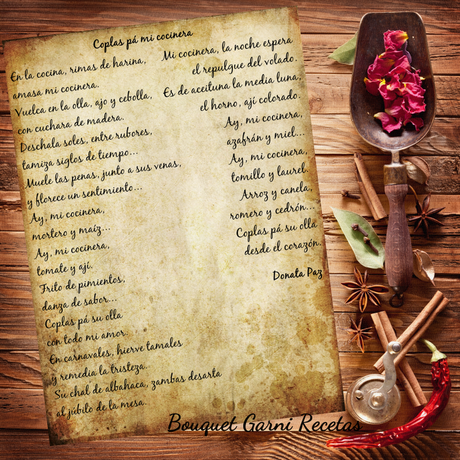 Coplas pá mi cocinera
En la cocina, rimas de harina,
amasa mi cocinera.
Vuelca en la olla, ajo y cebolla,
con cuchara de madera.
Deschala soles, entre rubores,
tamiza siglos de tiempo...
Muele las penas, junto a sus venas,
y florece un sentimiento...
Ay, mi cocinera,
mortero y maíz...
Ay, mi cocinera,
tomate y ají.
Frito de pimientos,
danza de sabor...
Coplas pá su olla
con todo mi amor...
En carnavales, hierve tamales
y remedia la tristeza.
Su chal de albahaca, zambas desarta
al júbilo de la mesa.
Mi cocinera, la noche espera
el repulgue del volado.
Es de aceituna la media luna,
el horno, ají colorado.
Ay, mi cocinera,
azafrán y miel...
Ay, mi cocinera,
tomillo y laurel.
Arroz y canela,
romero y cedrón...
Coplas pá su olla
desde el corazón.
Donata Paz
Bouquet Garni Recetas